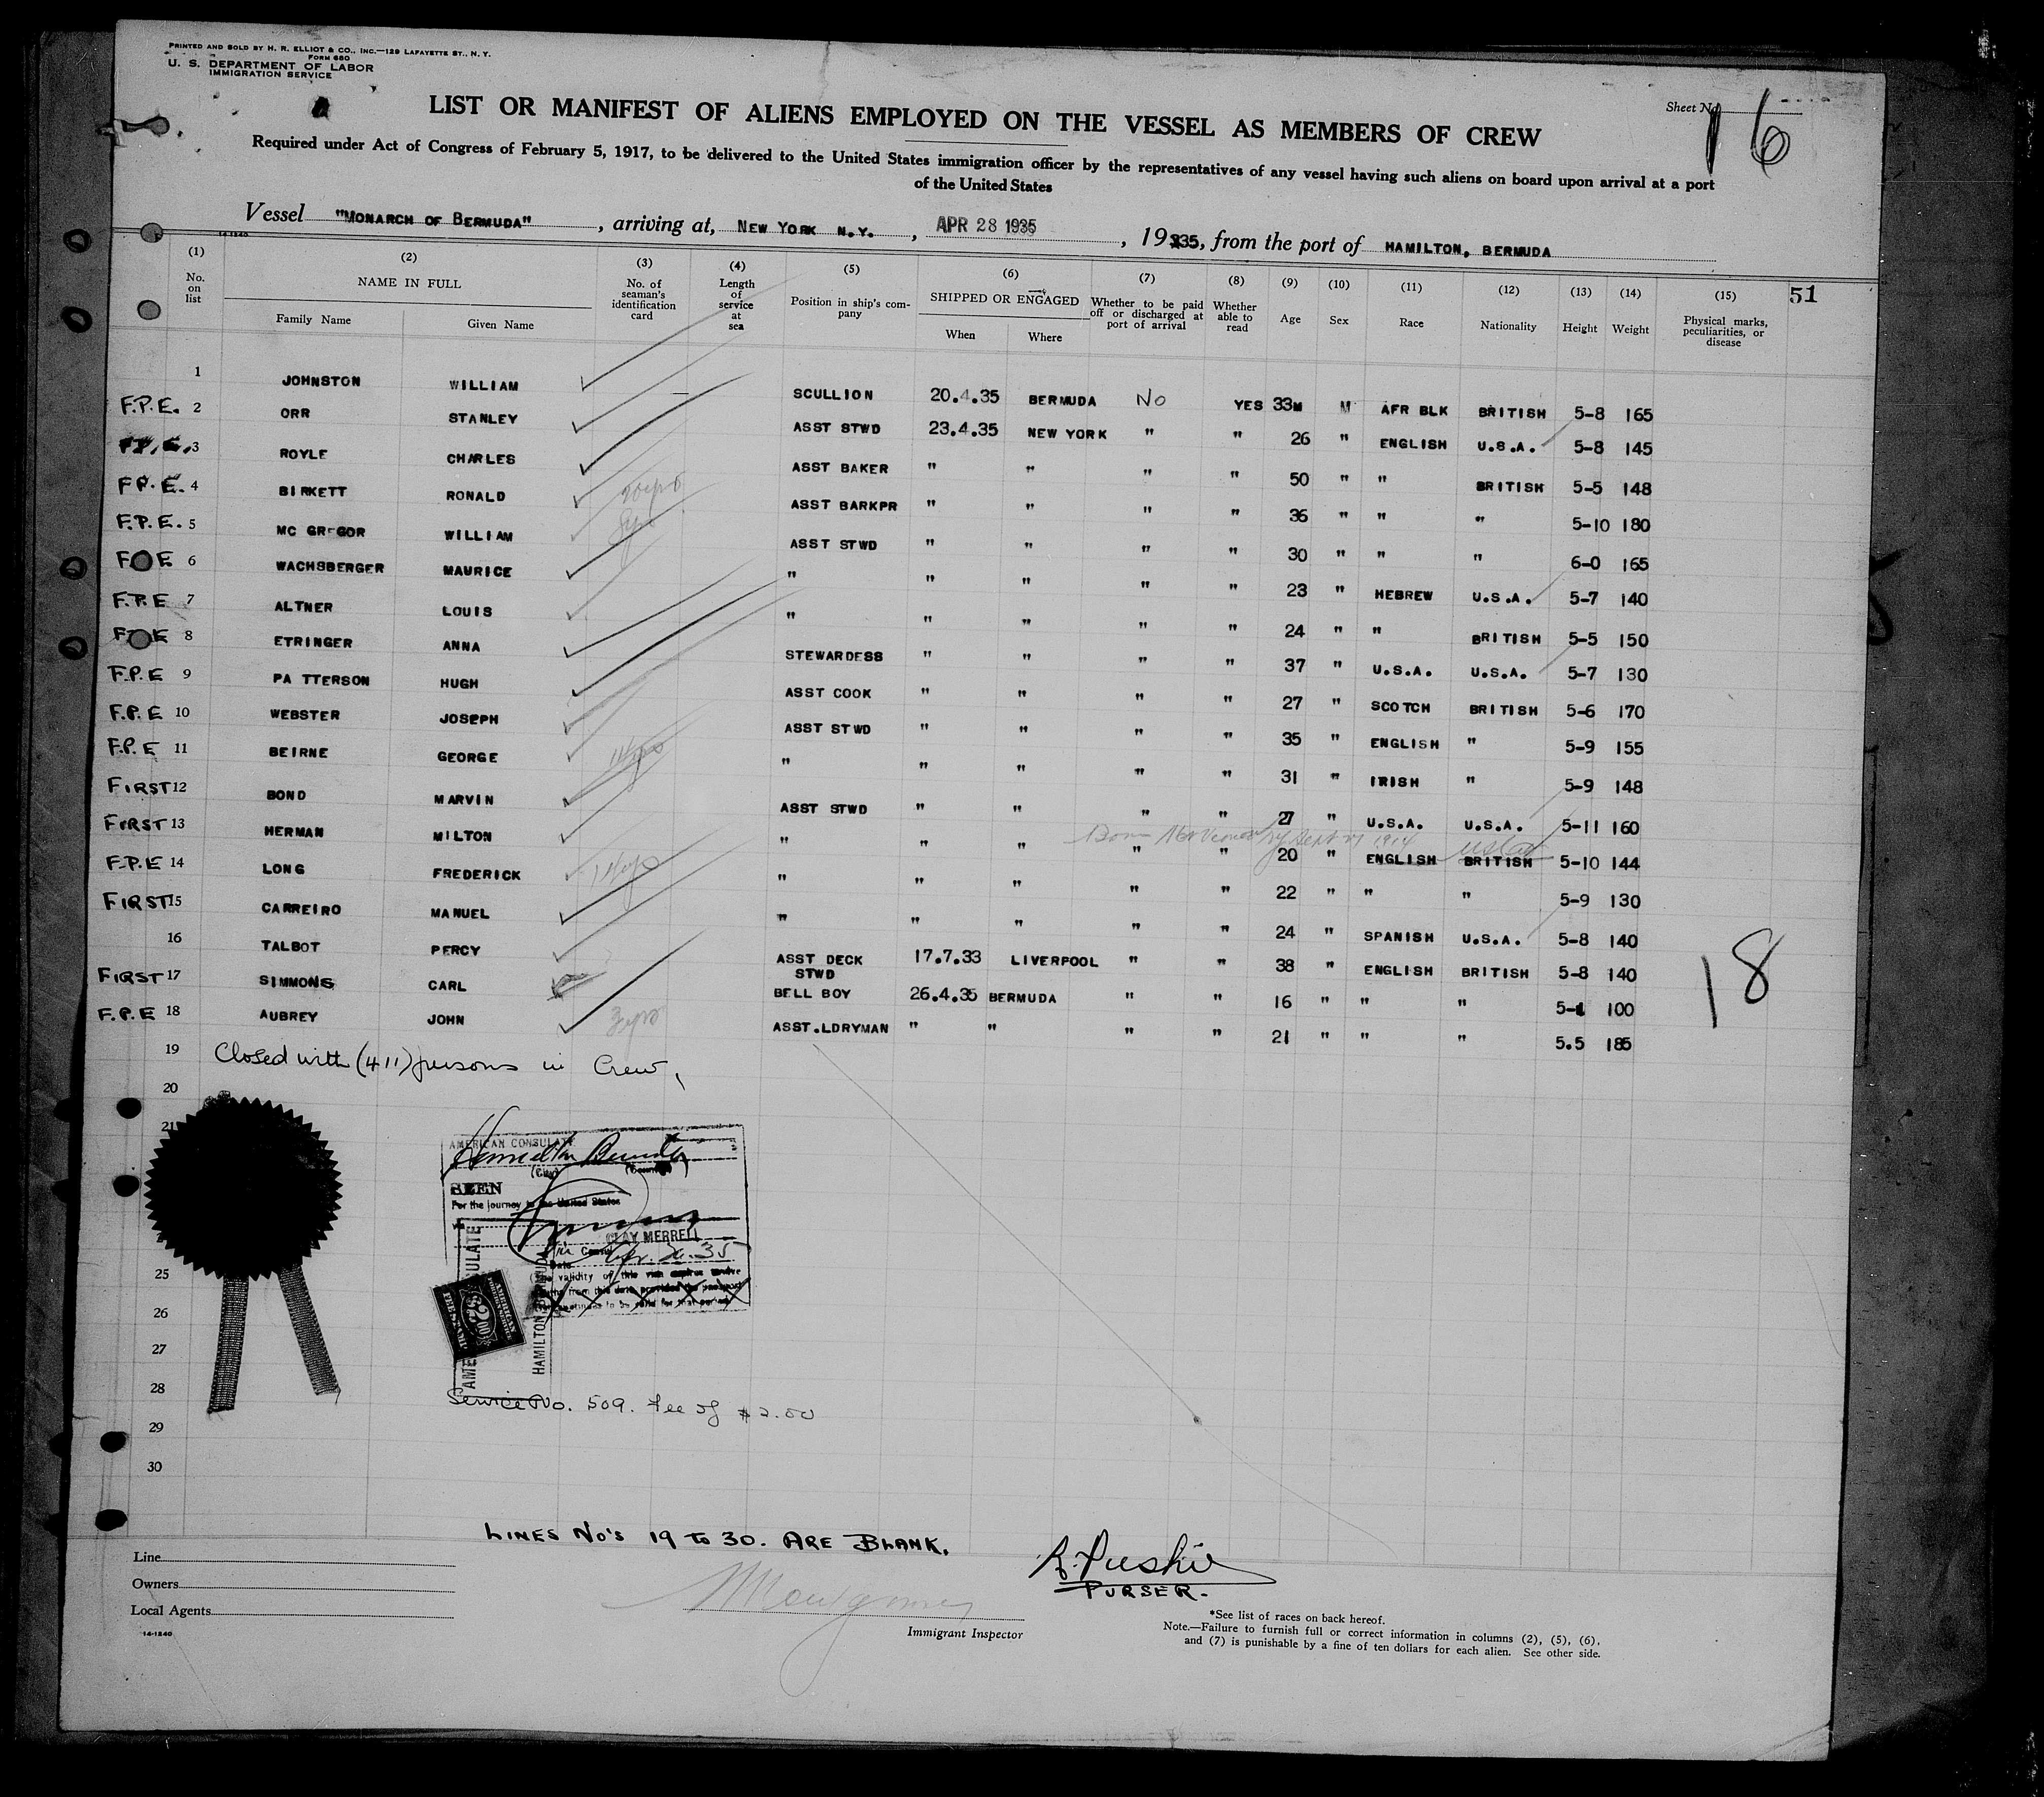 PRINTED AND SOLD BY H. R. ELLIOT & CO., INC.—129 LAFAYETTE ST., N. Y.
FORM 680
U. S. DEPARTMENT OF LABOR
IMMIGRATION SERVICE
Sheet No.
16
LIST OR MANIFEST OF ALIENS EMPLOYED ON THE VESSEL AS MEMBERS OF CREW
Required under Act of Congress of February 5, 1917, to be delivered to the United States immigration officer by the representatives of any vessel having such aliens on board upon arrival at a port
of the United States
Vessel "MONARCH OF BERMUDA", arriving at, NEW YORK N.Y., APR 28 1935, 1935, from the port of HAMILTON, BERMUDA
14-1240
(1) (2) (3) (4) (5) (6) (7) (8) (9) (10) (11) (12) (13) (14) (15) 51
No. on list
NAME IN FULL
Family Name Given Name
No. of seaman's identification card
Length of service at sea
Position in ship's company
SHIPPED OR ENGAGED
When Where
Whether to be paid off or discharged at port of arrival
Whether able to read
Age
Sex
Race
Nationality
Height
Weight
Physical marks, peculiarities, or disease
1 JOHNSTON WILLIAM SCULLION 20.4.35 BERMUDA No YES 33M M AFR BLK BRITISH 5-8 165
F.P.E. 2 ORR STANLEY ASST STWD 23.4.35 NEW YORK " " 26 " ENGLISH U.S.A. 5-8 145
F.P.E. 3 ROYLE CHARLES ASST BAKER " " " " 50 " " BRITISH 5-5 148
F.P.E. 4 BIRKETT RONALD ASST BARKPR " " " " 36 " " " 5-10 180
F.P.E. 5 MC GREGOR WILLIAM ASST STWD " " " " 30 " " " 6-0 165
6 WACHSBERGER MAURICE " " " " " 23 " HEBREW U.S.A. 5-7 140
F.P.E 7 ALTNER LOUIS " " " " " 24 " " BRITISH 5-5 150
8 ETRINGER ANNA STEWARDESS " " " " 37 " U.S.A. U.S.A. 5-7 130
F.P.E 9 PA TTERSON HUGH ASST COOK " " " " 27 " SCOTCH BRITISH 5-6 170
F.P.E 10 WEBSTER JOSEPH ASST STWD " " " " 35 " ENGLISH " 5-9 155
F.P.E 11 BEIRNE GEORGE " " " " " 31 " IRISH " 5-9 148
FIRST 12 BOND MARVIN ASST STWD " " " " 27 " U.S.A. U.S.A. 5-11 160
FIRST 13 HERMAN MILTON " " " " " 20 " ENGLISH BRITISH 5-10 144
F.P.E 14 LONG FREDERICK " " " " " 22 " " " 5-9 130
FIRST 15 CARREIRO MANUEL " " " " " 24 " SPANISH U.S.A. 5-8 140
16 TALBOT PERCY ASST DECK STWD 17.7.33 LIVERPOOL " " 38 " ENGLISH BRITISH 5-8 140
FIRST 17 SIMMONS CARL BELL BOY 26.4.35 BERMUDA " " 16 " " " 100
F.P.E 18 AUBREY JOHN ASST.LDRYMAN " " " " 21 " " " 5.5 185
18
19 Closed with (411) persons in Crew,
20
21
AMERICAN CONSULATE
Hamilton Bermuda
(City) (Country)
SEEN
For the journey to the United States
CLAY MERRELL
Consul
Date
25
26
27
28
AMERICAN CONSULATE
HAMILTON, BERMUDA
Service No. 509. fee of $2.00
29
30
LINES No's 19 to 30. ARE BLANK.
Line
Owners
Local Agents
14-1240
Montgomery
Immigrant Inspector
PURSER.
*See list of races on back hereof.
Note.—Failure to furnish full or correct information in columns (2), (5), (6),
and (7) is punishable by a fine of ten dollars for each alien. See other side.